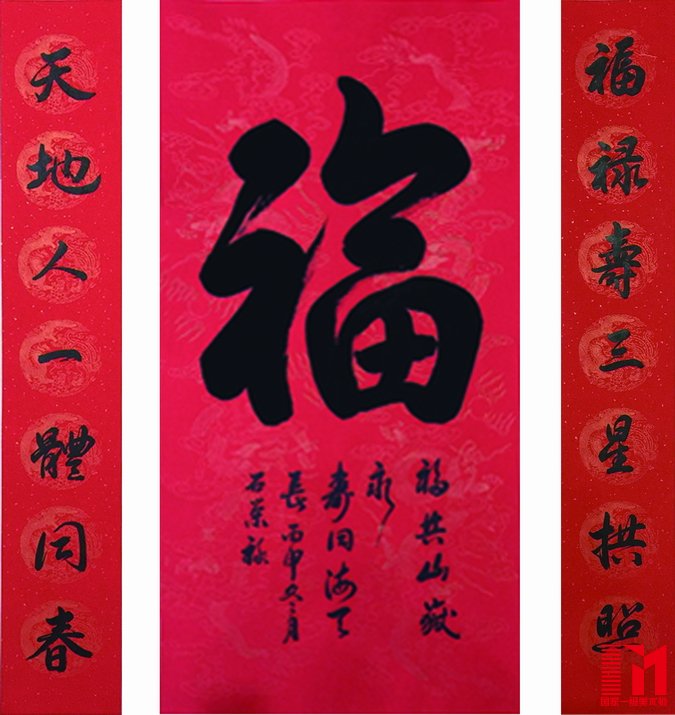 福禄壽三星拱照
福
福共山嶽
永
壽同海天
長丙申
天地人一體同春